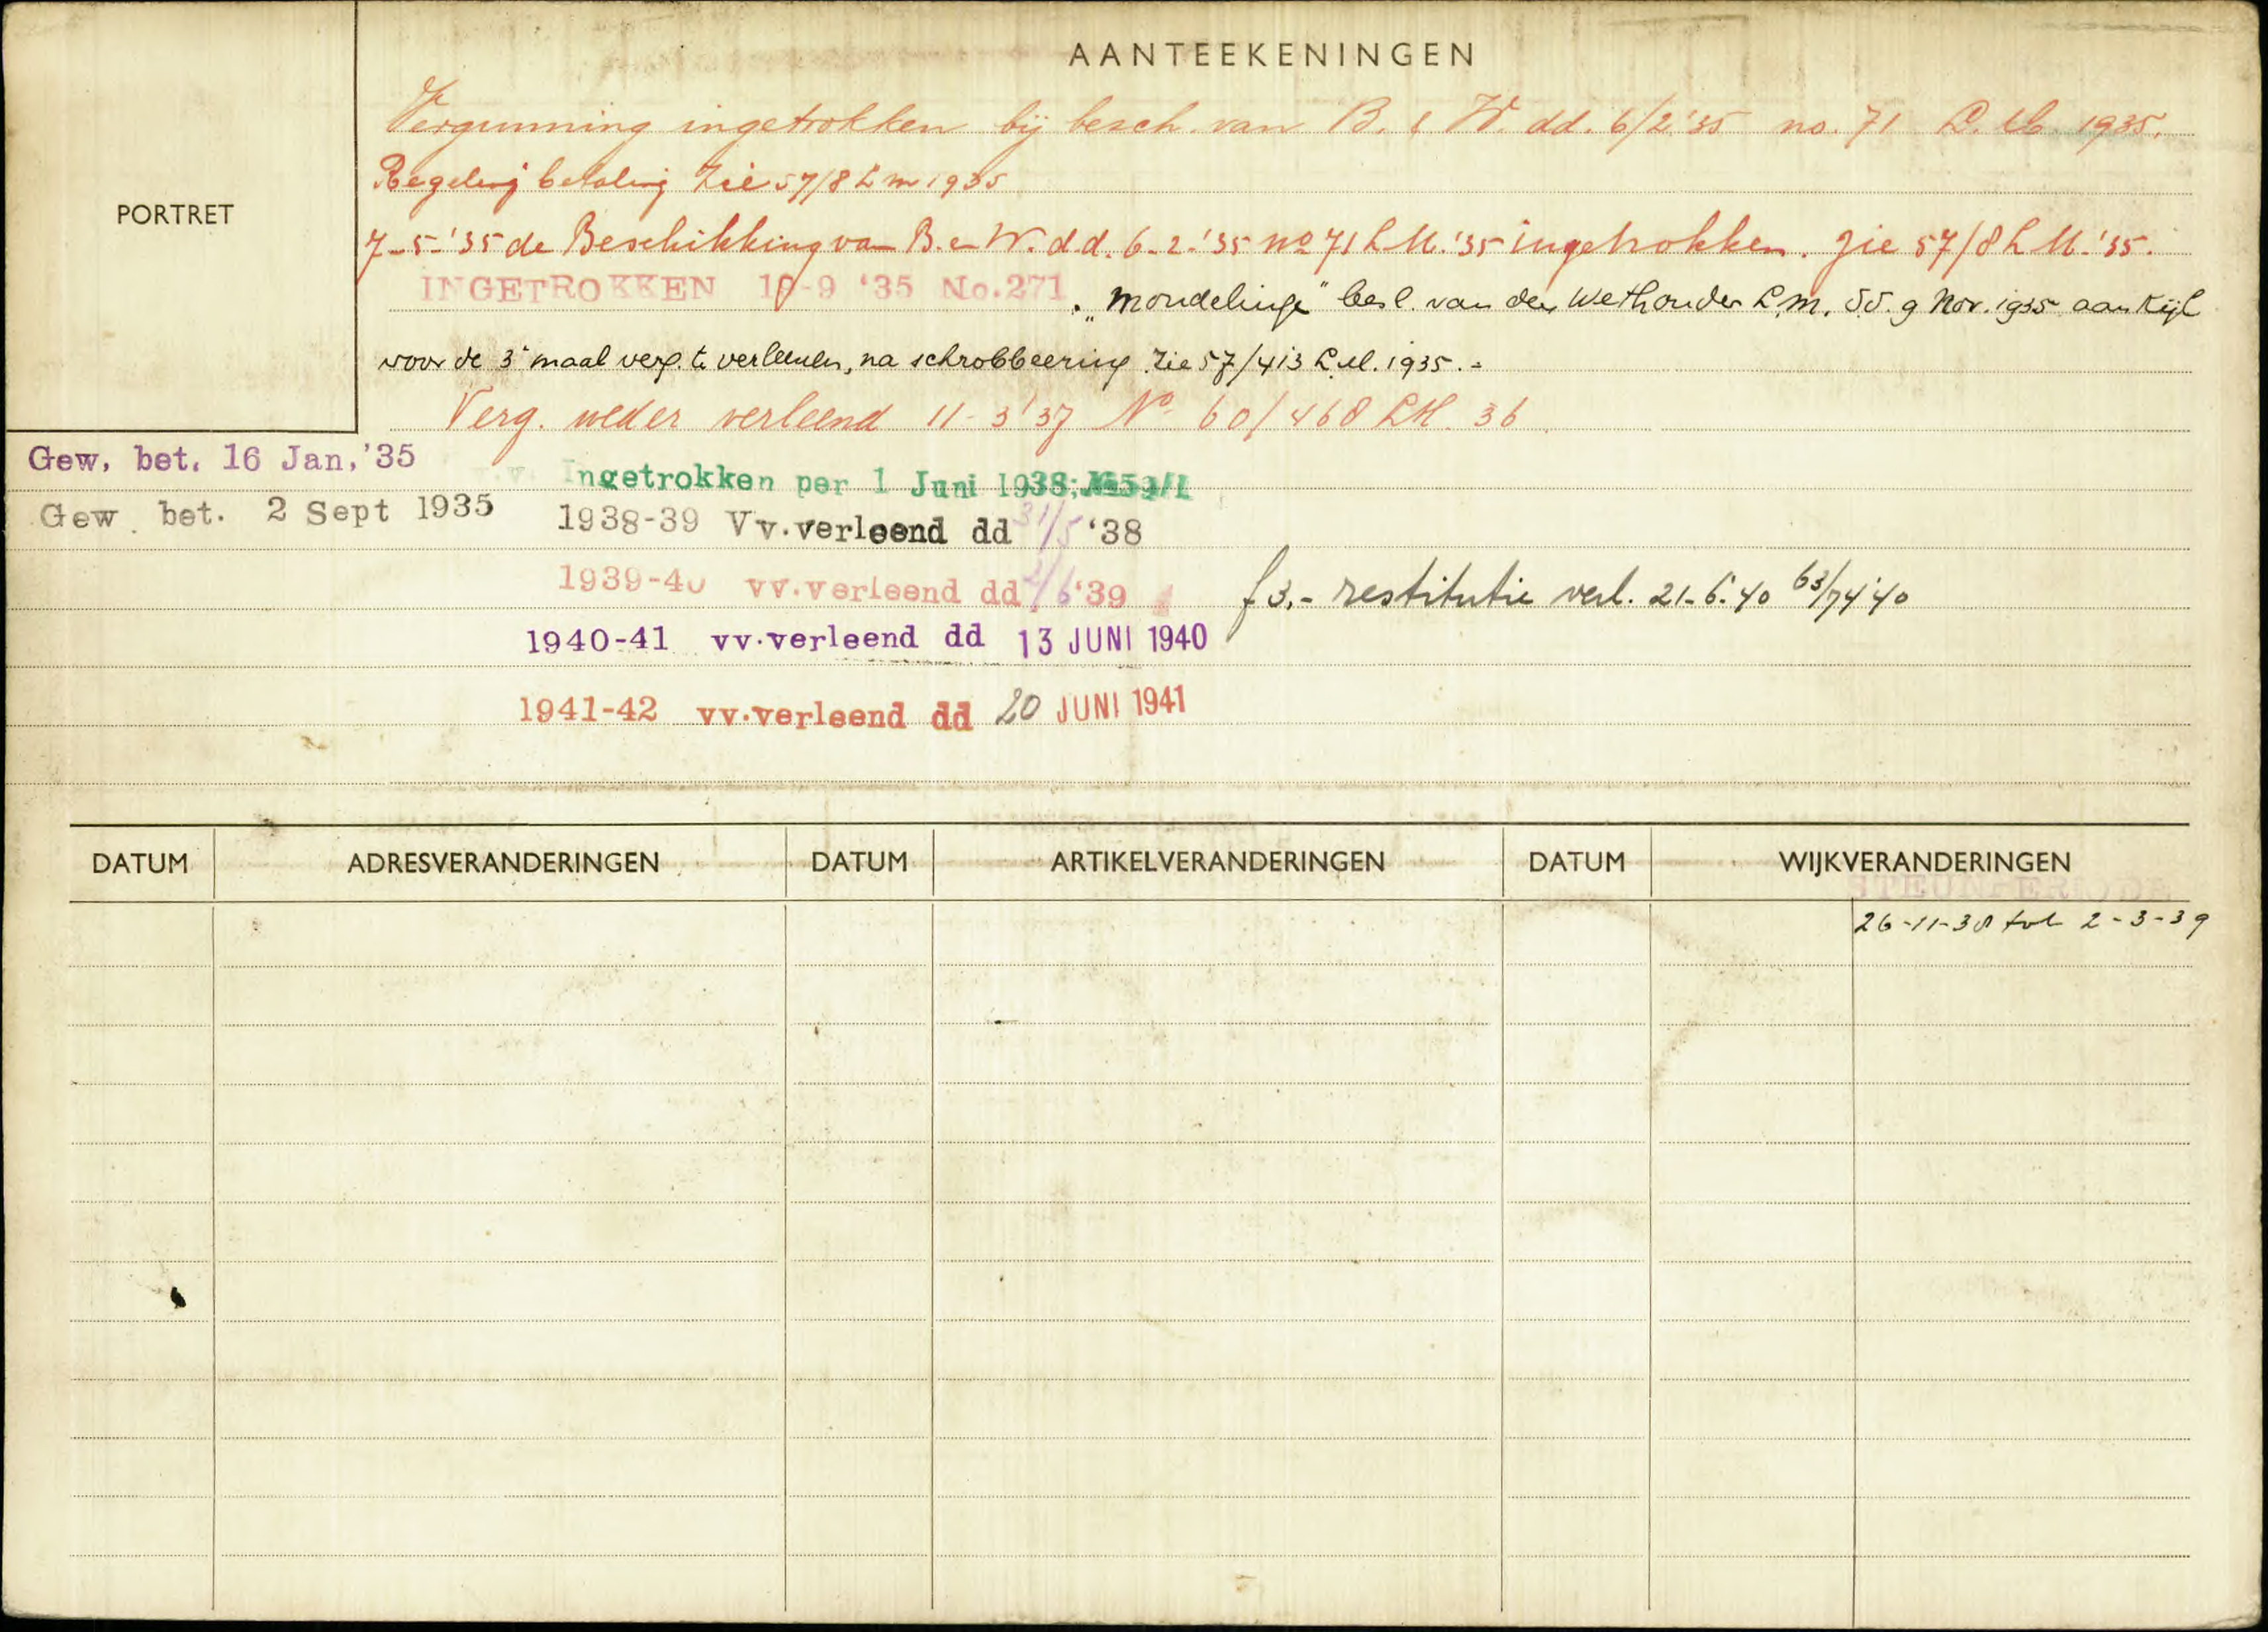 AANTEEKENINGEN
Vergunning ingetrokken bij besch. van B. & W. dd. 6/2 '35 no. 71 L.M. 1935.
Regeling betaling zie 57/8 L m 1935
PORTRET
7-5-'35 de Beschikking van B. en W. d.d. 6-2-'35 no 71 L.M. '35 ingetrokken. Zie 57/8 L M. '35.
INGETROKKEN 10-9 '35 No. 271 . „mondelinge" besl. van den Wethouder L.M. dd. 9 Nov. 1935 aan Kijl
voor de 3e maal verg. te verleenen, na schrobbeering zie 57/413 L.M. 1935.-
Verg. weder verleend 11-3'37 No 60/468 LM. 36
Gew. bet. 16 Jan,'35
Ingetrokken per 1 Juni 1938;
Gew. bet. 2 Sept 1935
1938-39 Vv.verleend dd 31/5 '38
1939-40 vv.verleend dd 2/6 '39 f 3.- restitutie verl. 21-6-'40 63/74 '40
1940-41 vv.verleend dd 13 JUNI 1940
1941-42 vv.verleend dd 20 JUNI 1941
DATUM ADRESVERANDERINGEN DATUM ARTIKELVERANDERINGEN DATUM WIJKVERANDERINGEN
STEUNPERIODE
26-11-38 tot 2-3-39